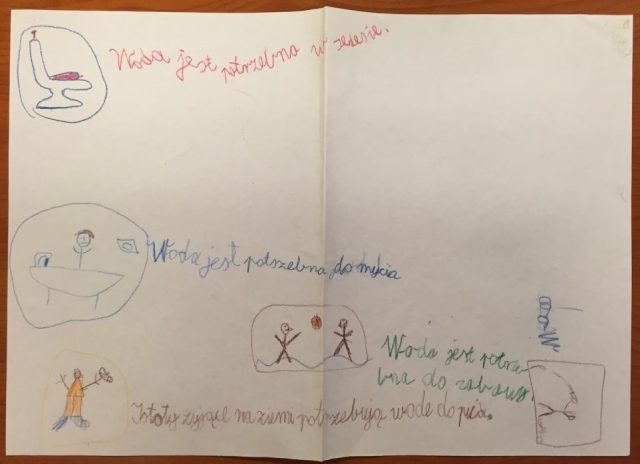 Woda jest potrzebna w
Woda jest potrzebna do mycia
Woda jest potrze
bna do zabawy.
Istoty żyjące na ziemi potrzebują wode do picia.